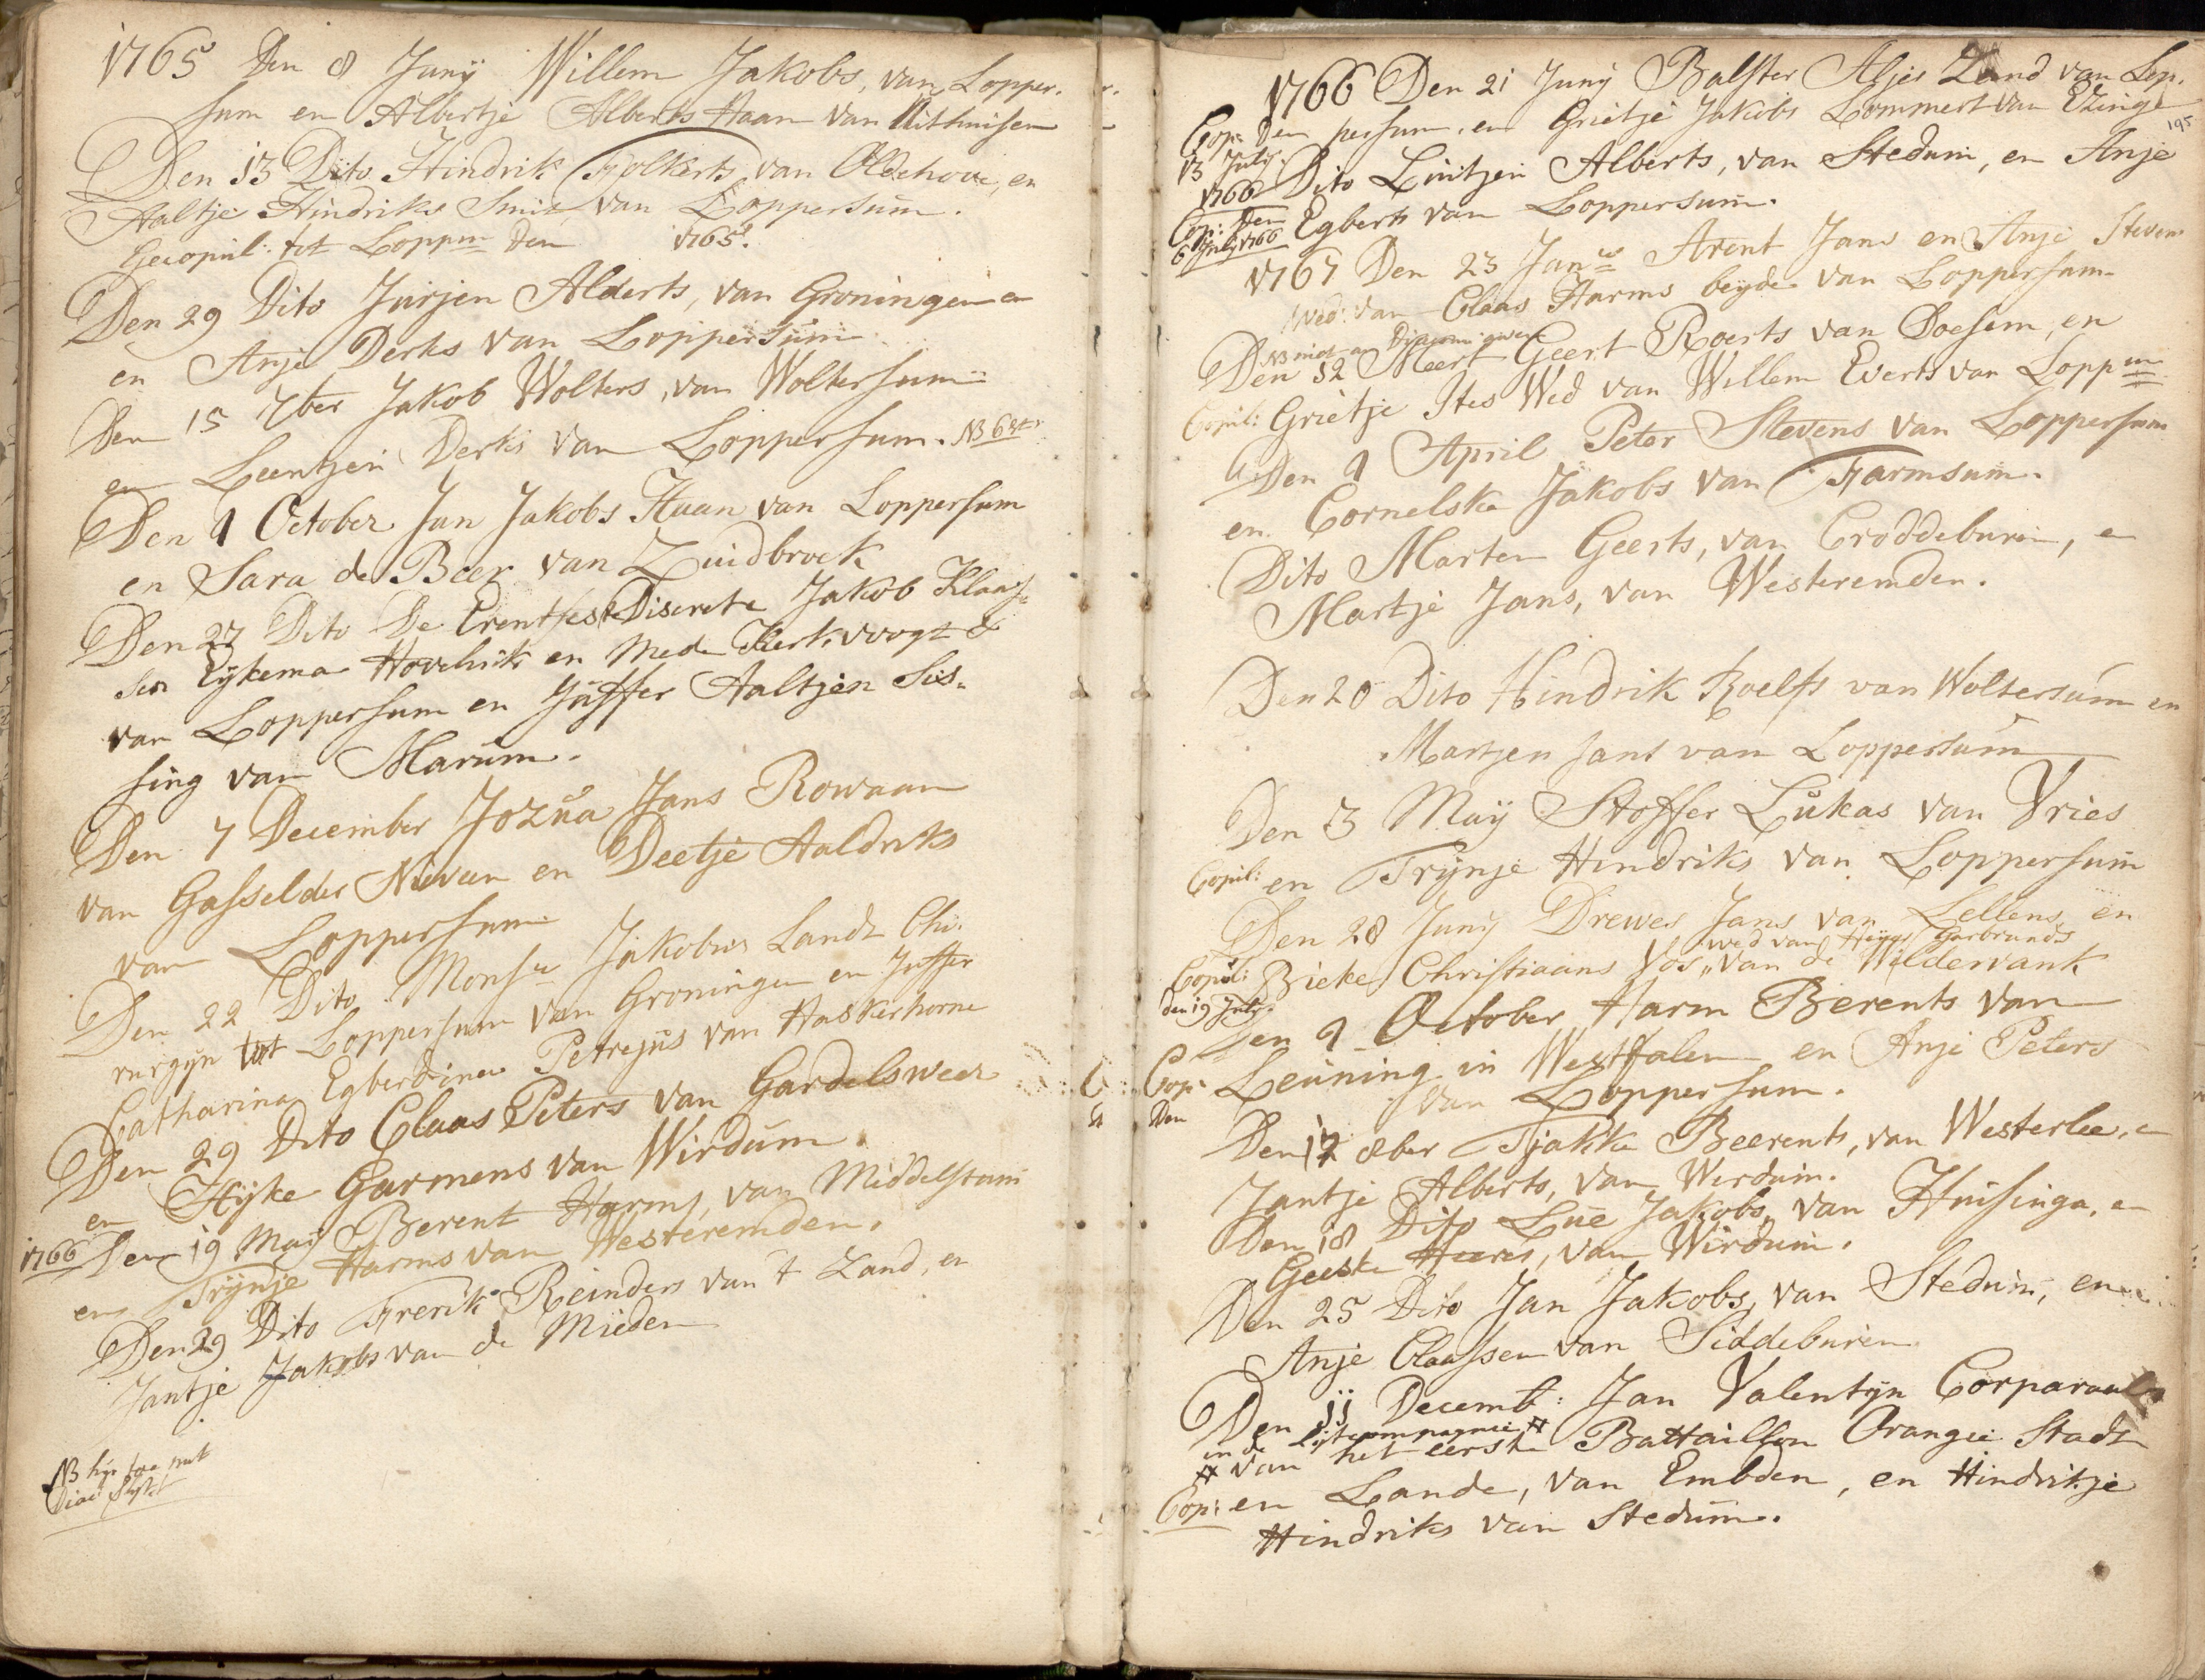 1765 Den 8 Junij Willem Jakobs, van Lopper-
sum en Albertje Alberts Haan van Uithuisen
Den 13 Dito Hindrik Folkerts van Oldehove, en
Aaltje Hindriks Smit van Loppersum.
Gecopul: tot Loppm den 1765.
Den 29 Dito Jurjen Alderts, van Groningen en
en Anje Derks van Loppersum
Den 15 7ber Jakob Wolters, van Woltersum
en Leentjen Derks van Loppersum. NB
Den 9 October Jan Jakobs Haan van Loppersum
en Sara de Beer van Zuidbroek
Den 27 Dito De Erentfeste Discrete Jakob Klaas-
sen Eijkema Hovelink en Mede Kerkvoogt
van Loppersum en Juffer Aaltjen Sis-
sing van Marum.
Den 7 December Jozua Jans Rowaan
van Gasselder Niveen en Deetje Aaldriks
van Loppersum
Den 22 Dito Monsr Jakobus Landt Chi-
rurgijn tot Loppersum van Groningen en Juffer
Catharina Egberdina Petrejus van Haskerhorne
Den 29 Dito Claas Peters van Gardelsweer
en Hijke Garmens van Wirdum.
1766 Den 19 Maij Berent Harms, van Middelstum
en Trijnje Harms van Westeremden.
Den 29 Dito Frerik Reinders van 't Land, en
Jantje Jakobs van de Mieden
NB
1766 Den 21 Junij Balster Aljes Land van Lop-
Cop: den persum, en Grietje Jakobs Lommert van Ezinge
195
13 July
1766 Dito Luitjen Alberts, van Stedum, en Anje
Cop: den Egberts van Loppersum.
6 July 1766
1767 Den 23 Jan Arent Jans en Anje Stevens
Wed: van Claas Harms beyde van Loppersum
NB
Den 12 Meert Geert Roerts van Doesum, en
Copul: Grietje Ites Wed van Willem Everts van Loppm
Den 9 April Peter Stevens van Loppersum
en Cornelske Jakobs van Farmsum.
Dito Marten Geerts, van Croddeburen, en
Martje Jans, van Westeremden.
Den 20 Dito Hindrik Roelfs van Woltersum en
Martjen Jans van Loppersum
Den 3 Maij Stoffer Lukas van Vries
Copul: en Trijnje Hindriks van Loppersum
Den 28 Junij Drewes Jans van Lellens en
wed van Garbrands
Copul: Bieke Christiaans Vos, van de Wildervank
den 19 July
Den 9 October Harm Berents van
Cop: Leuning in Westfalen en Anje Peters
den van Loppersum.
Den 12 8ber Tjakke Beerents, van Westerlee, en
Jantje Alberts, van Wirdum.
Den 18 Dito Lue Jakobs, van Huisinga, en
Geeske Heeres, van Wirdum.
Den 25 Dito Jan Jakobs, van Stedum, en
Anje Claassen van Siddeburen
Den 11 Decemb: Jan Valentijn Corporaal
in de Lijfcompagnie #
# van het eerste Battaillon Orange Stadt
Cop: en Lande, van Embden, en Hindrikje
Hindriks van Stedum.